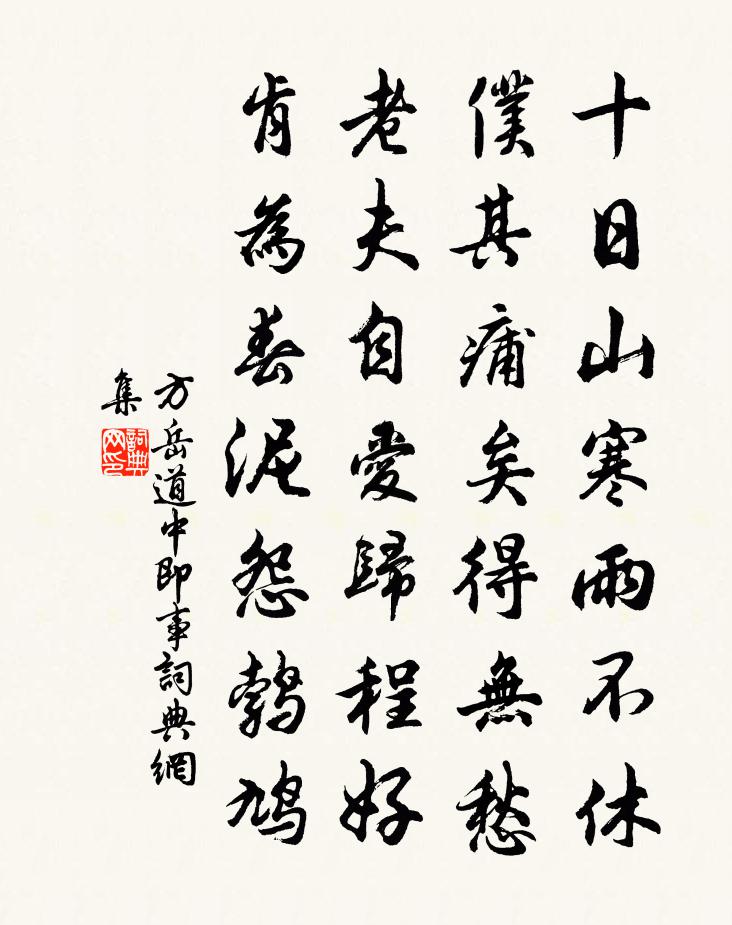 十日山寒雨不休
僕其痡矣得無愁
老夫自愛歸程好
肯為春泥怨鵓鳩
方岳道中即事詞典網
集
詞典
网印